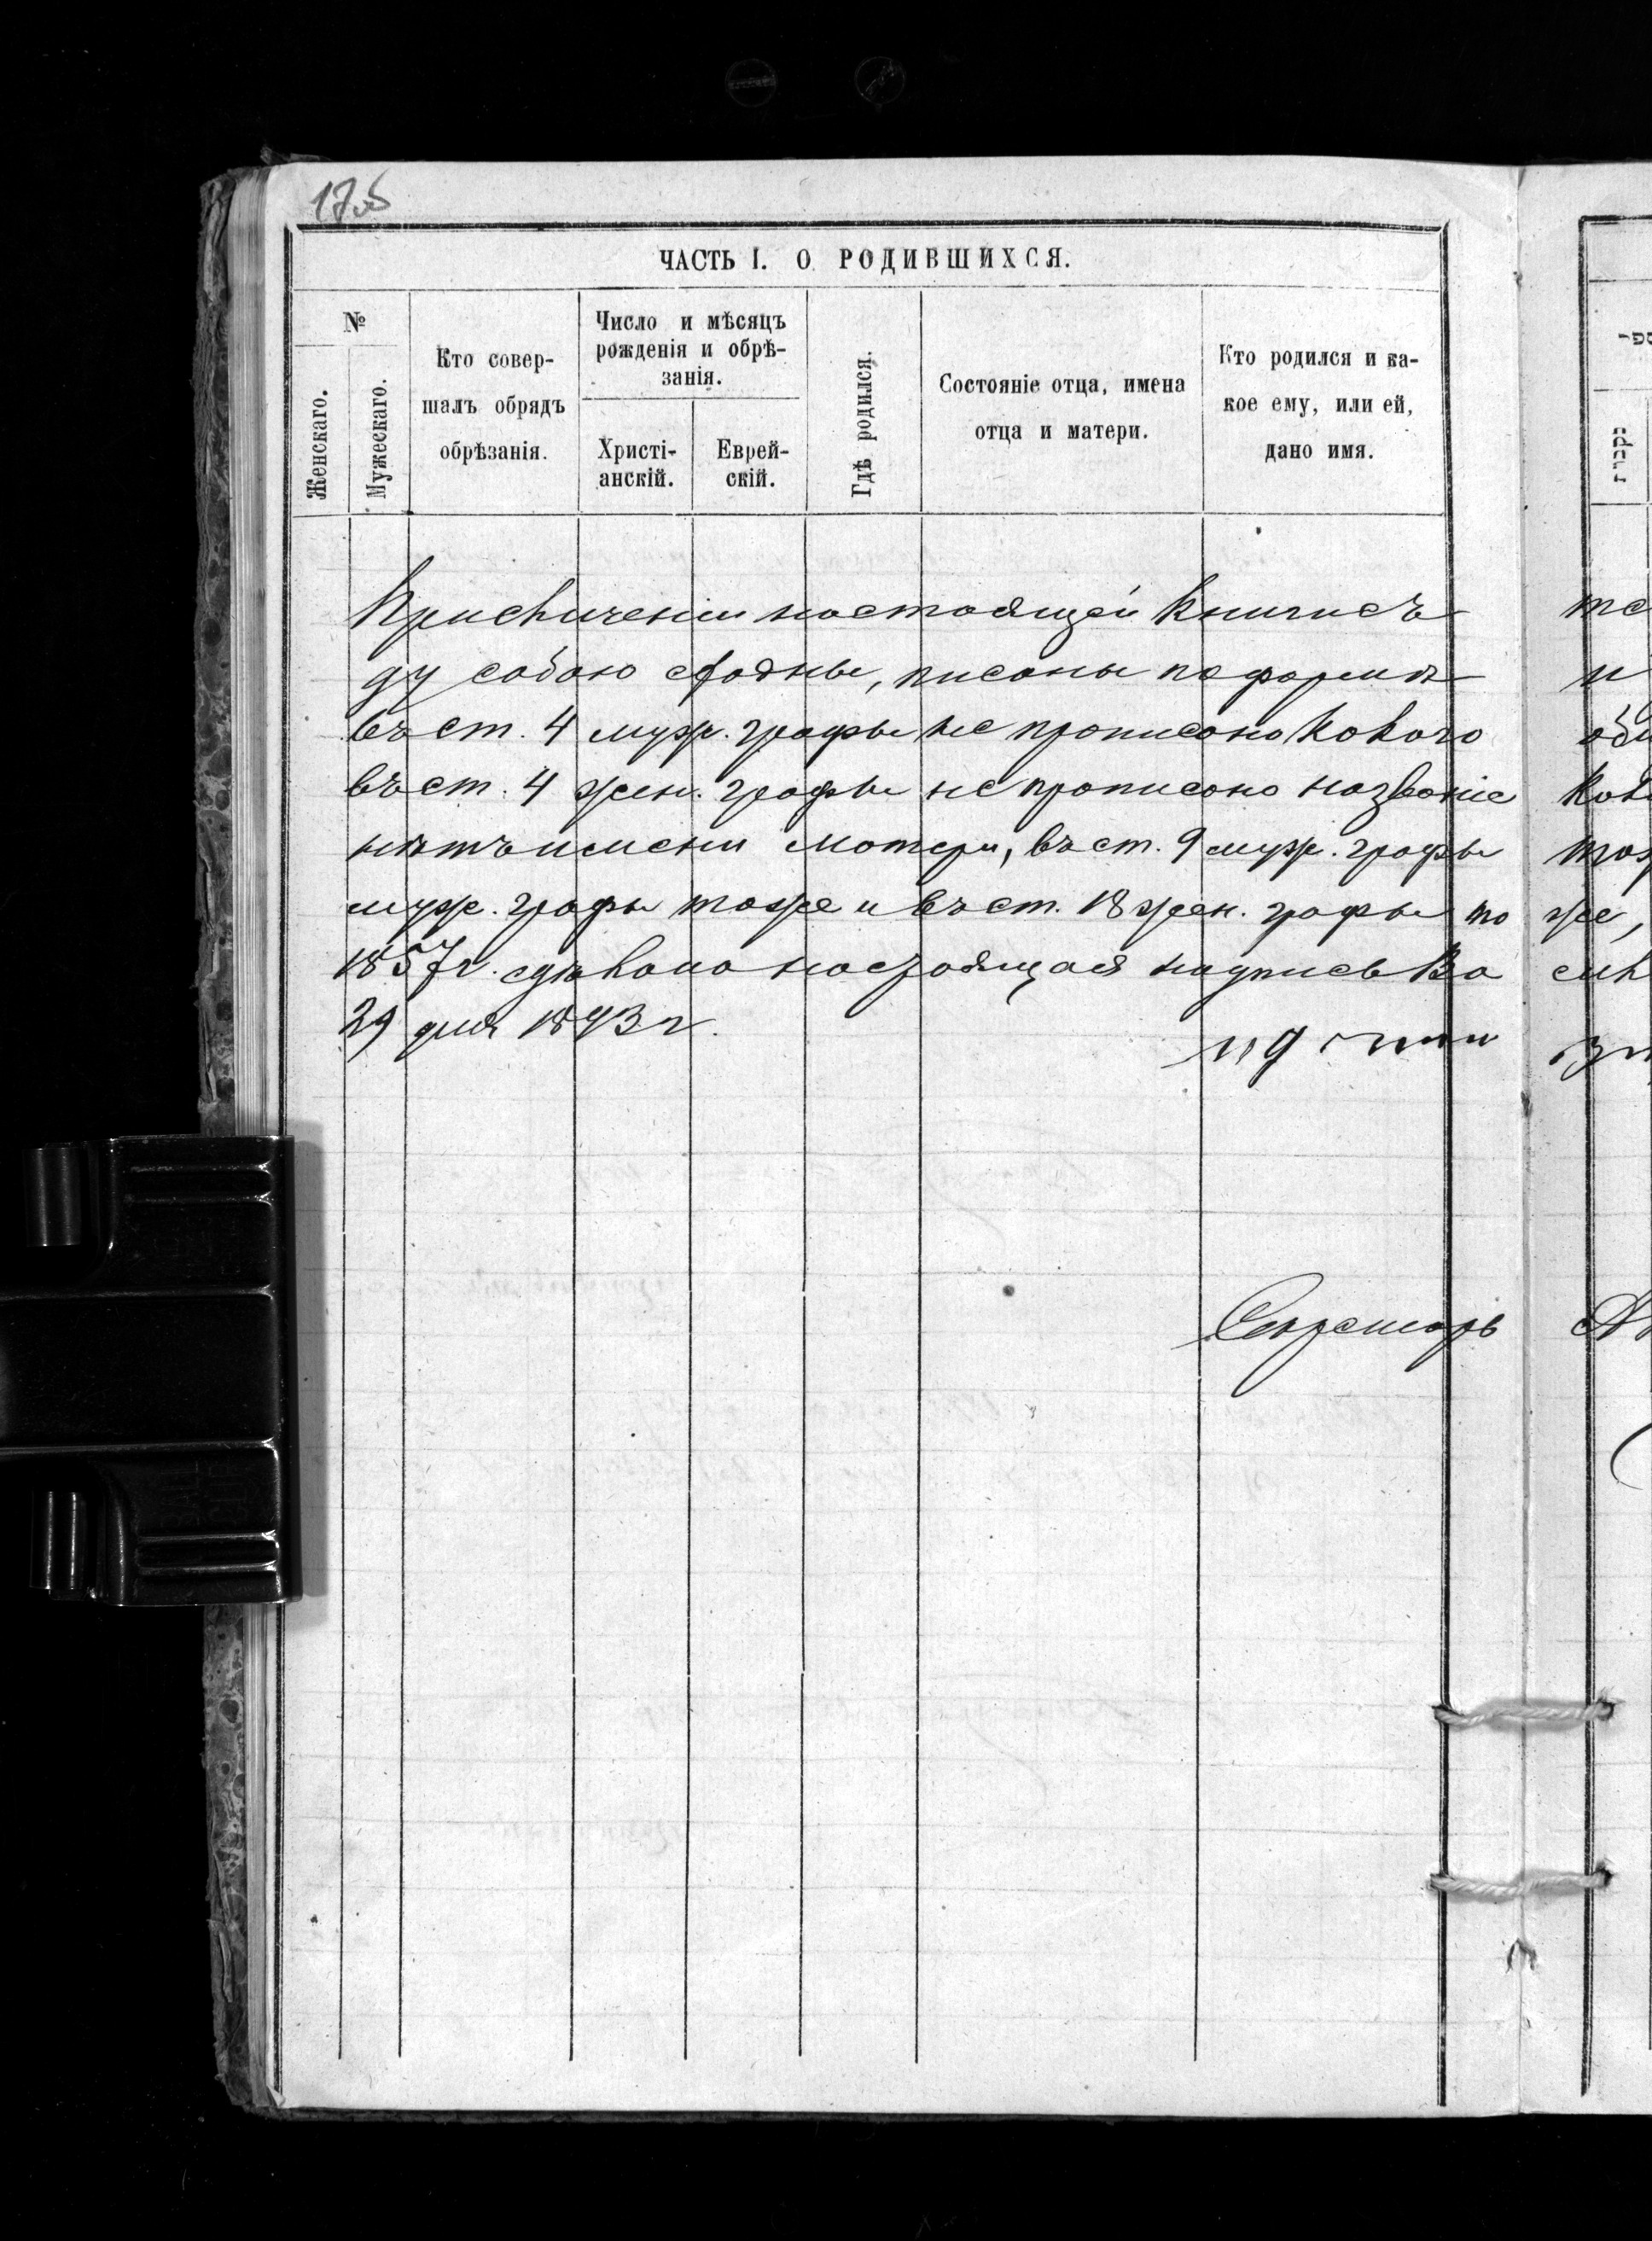 17об
ЧАСТЬ I. О РОДИВШИХСЯ.
№
Женскаго.
Мужескаго.
Кто совер-
шалъ обрядъ
обрѣзанія.
Число и мѣсяцъ
рожденія и обрѣ-
занія.
Христі-
анскій.
Еврей-
скій.
Гдѣ родился.
Состояніе отца, имена
отца и матери.
Кто родился и ка-
кое ему, или ей,
дано имя.
При сличеніи настоящей книги съ
ду собою сходны, писаны по формѣ
въ ст. 4 муж. графы не прописано какого
въ ст. 4 жен. графы не прописано названіе
нѣтъ имени матери, въ ст. 9 муж. графы
муж. графы тоже и въ ст. 18 жен. графы то
1857 г. сдѣлана настоящая надпись
29 дня 1893 г.
Секретарь